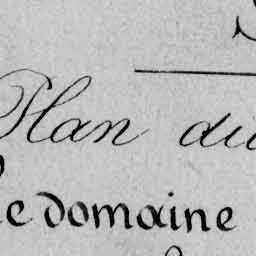 Plan du
le domaine